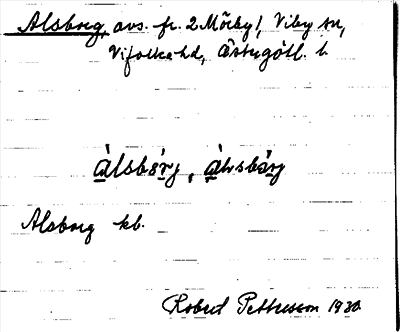 Alsborg, avs. fr. 2 Mörby 1, Viby sn,
Vifolka hd, Östergötl. l.
Alsborg kb.
Robert Pettersson 1930